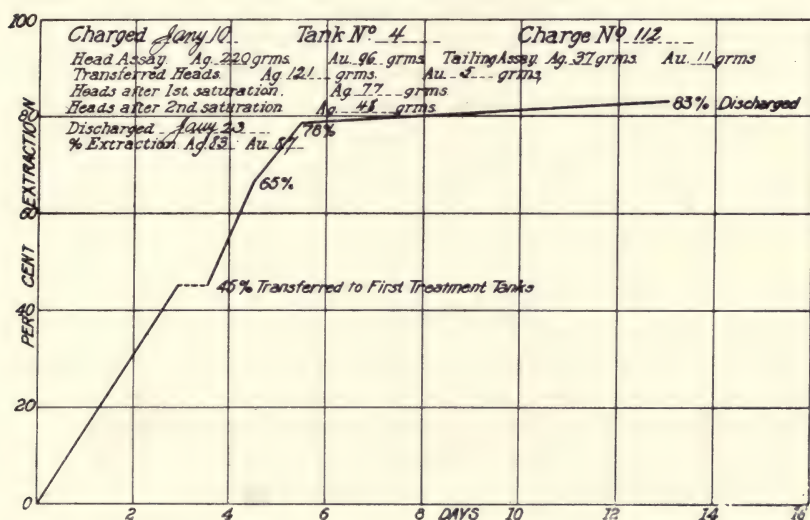 100
Charged Jany 10 Tank Nº 4 Charge Nº 112
Head Assay Ag 220 grms. Au .96 grms Tailing Assay Ag. 37 grms. Au .11 grms
Transferred Heads. Ag 121 grms. Au .5 grms.
Heads after 1st. saturation. Ag 77 grms.
Heads after 2nd. saturation Ag 48 grms.
Discharged Jany 23
% Extraction Ag 83 Au 87
83% Discharged
80
78%
65%
60
45% Transferred to First Treatment Tanks
40
20
0
PER CENT EXTRACTION
2 4 6 8 DAYS 10 12 14 16